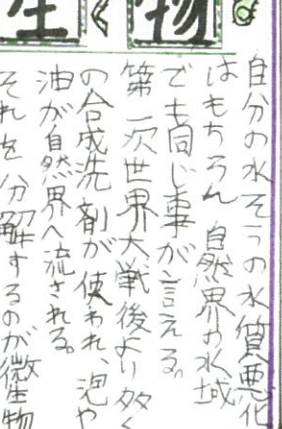 物く生
自分の水そうの水質悪化
はもちろん 自然界の水域
でも同じ事が言える。
第一次世界大戦後より多く
の合成洗剤が使われ、泥や
油が自然界へ流される。
それを分解するのが微生物